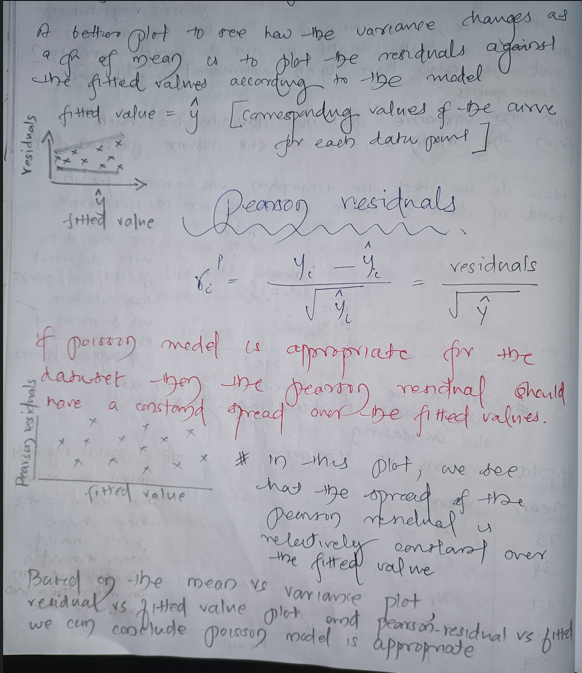 A better plot to see how the variance changes as
a fn of mean is to plot the residuals against
the fitted values according to the model
fitted value = ŷ [corresponding values of the curve
for each data point]
residuals
ŷ
fitted value
Pearson residuals
rᵢᴾ = (yᵢ − ŷᵢ) / √ŷᵢ = residuals / √ŷ
If poisson model is appropriate for the
dataset then the pearson residual should
have a constand spread over the fitted values.
Pearson residuals
fitted value
# In this plot, we see
that the spread of the
pearson residual is
relatively constant over
the fitted value
Based on the mean vs variance plot,
residual vs fitted value plot and pearson-residual vs fitted
we can conclude poisson model is appropriate